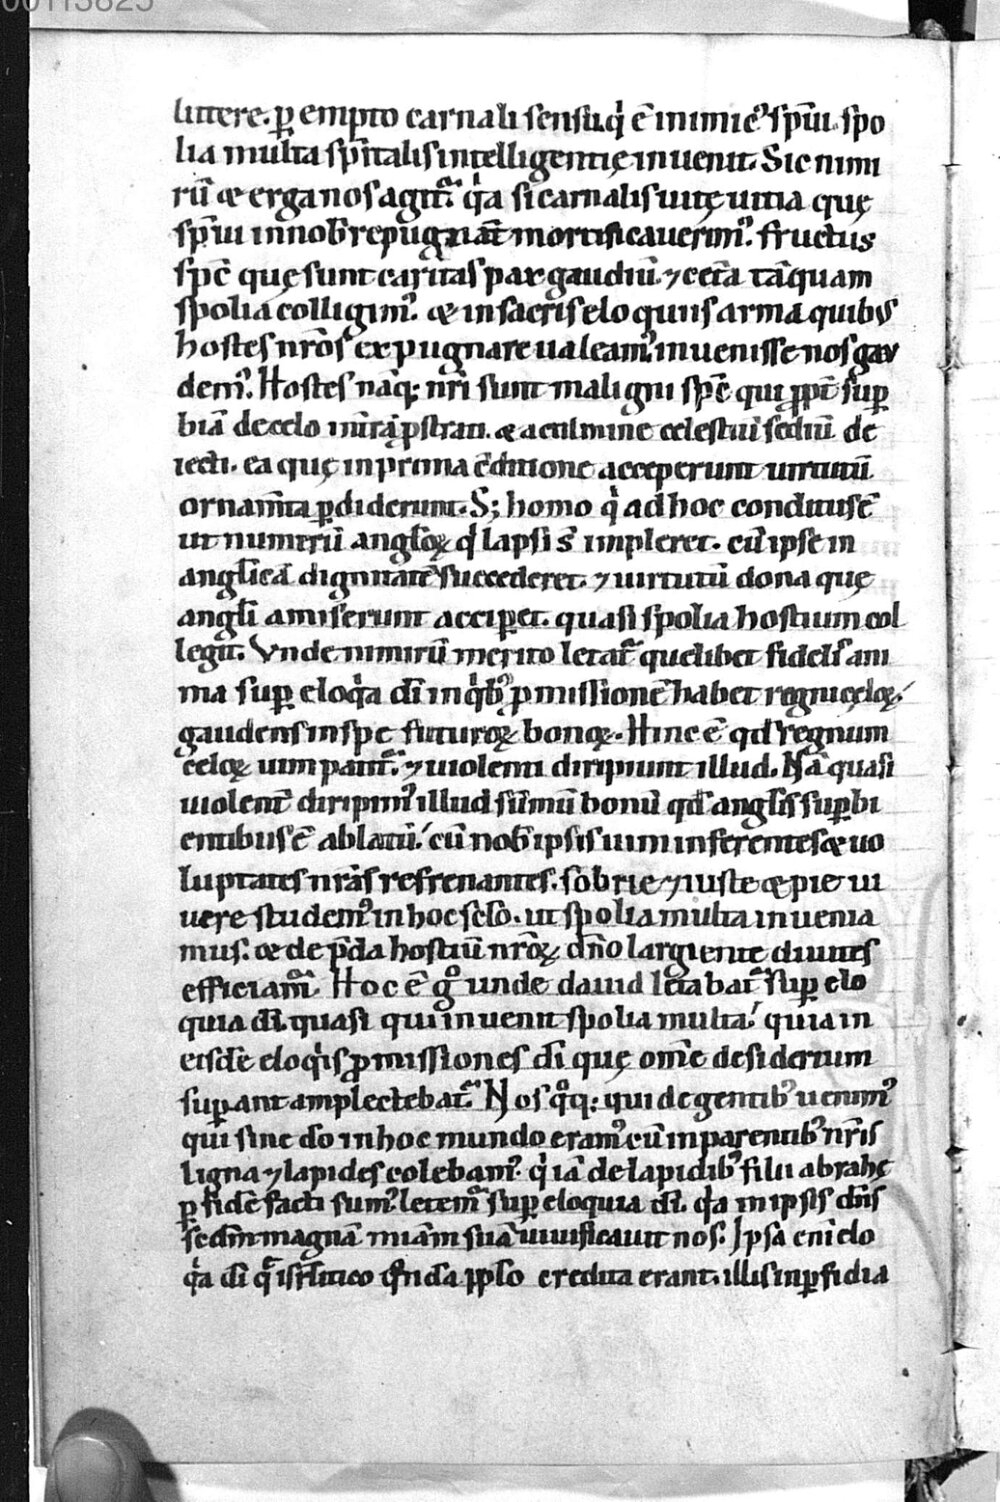 00113825
littere. ꝑ empto carnali sensu. qͥ ē inimicꝰ spͨui. spo
lia multa spͥtalis intelligentię inuenit. Sic nimi
rū & erga nos agitᷣ. qͥa si carnalis uitę uitia quę
spͨui in nob̄ repugnāt mortificauerimꝰ. fructus
spͨc quę sunt caritas pax gaudiū. ⁊ cet̄a tāquam
spolia colligimꝰ. & in sacris eloquiis arma quibus
hostes nr̄os expugnare ualeamꝰ inuenisse nos gau
demꝰ. Hostes nāq; nr̄i sunt maligni spͨc qui ꝓpt̄ suꝑ
biā de celo in t̄ra ꝓstrati. & a culmine celestiū sediū de
iecti. ea quę in prima c̄ditione acceperunt uirtutū
ornam̄ta ꝑdiderunt. S; homo qͥ ad hoc conditus ē
ut numerū angl̄oꝝ qͥ lapsi s̄ impleret. cū ipse in
angl̄icā dignitatē succederet. ⁊ uirtutū dona quę
angl̄i amiserunt acciꝑet. quasi spolia hostium col
legit. Vnde nimirū merito letatᷣ quelibet fidelis ani
ma suꝑ eloqͥa dī in qͥbꝰ ꝓmissionē habet regni cęloꝝ.
gaudens in spe futuroꝝ bonoꝝ. Hinc ē qd̄ regnum
celoꝝ uim patitᷣ. ⁊ uiolenti diripiunt illud. Nā quasi
uiolent̄ diripimꝰ illud sūmū bonū qd̄ angl̄is suꝑbi
entibus ē ablatū. cū nob̄ ipsis uim inferentes & uo
luptates nr̄as refrenantes. sobrie ⁊ iuste & pie ui
uere studemꝰ in hoc sc̄lo. ut spolia multa inuenia
mus. & de p̄da hostiū nr̄oꝝ dn̄o largiente diuites
efficiamᷣ. Hoc ē gͦ unde dauid letabatᷣ suꝑ elo
quia dī. quasi qui inuenit spolia multa. quia in
eisdē eloqͥis ꝓmissiones dī quę om̄e desiderium
suꝑant amplectebatᷣ. Nos qͦq; qui de gentibꝰ uenimꝰ
qui sine dō in hoc mundo eramꝰ cū in parentibꝰ nr̄is
ligna ⁊ lapides colebamꝰ. qͥ iā de lapidibꝰ filii abrahę
ꝑ fidē facti sumꝰ letemᷣ suꝑ eloquia dī. qͥa in ipsis dn̄s
sedm̄ magnā mīam suā uiuificauit nos. Ipsa eni elo
qͥa dī qͣ isrl̄itico qͦndā ppl̄o credita erant. illis in ꝑfidia